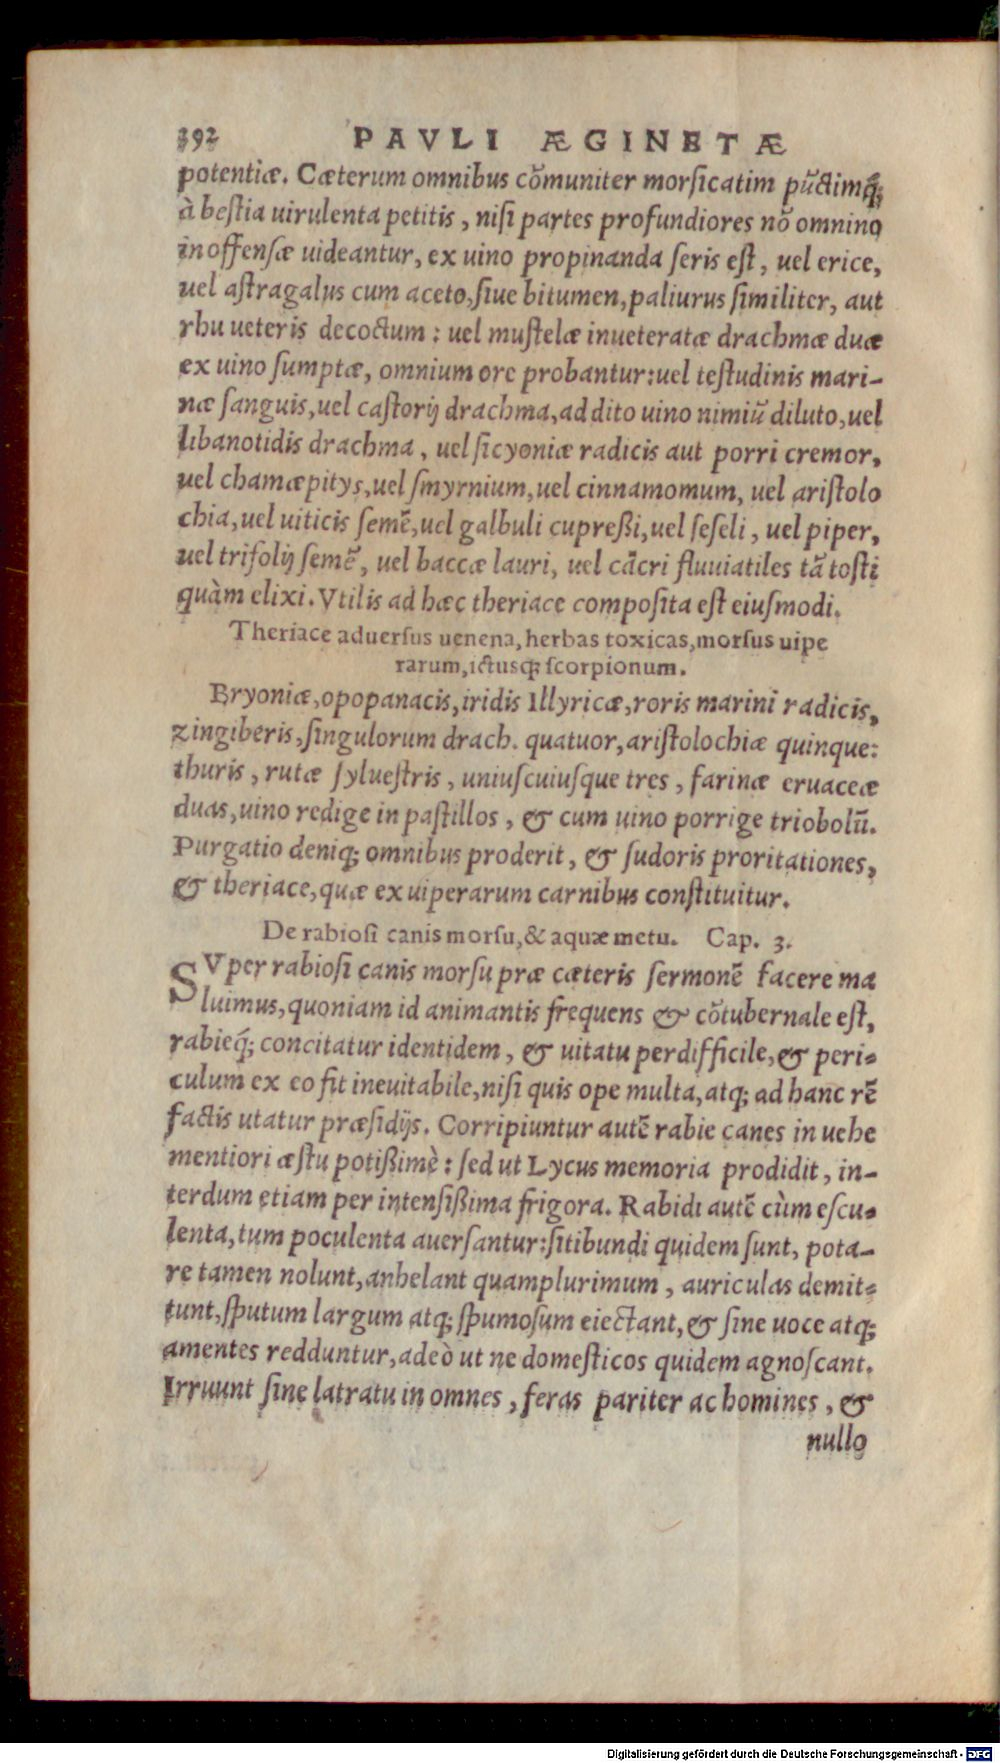 392 PAVLI ÆGINETÆ
potentiæ. Cæterum omnibus cōmuniter morsicatim pūctimq́;
à bestia uirulenta petitis, nisi partes profundiores nō omnino
inoffensæ uideantur, ex uino propinanda seris est, uel erice,
uel astragalus cum aceto, siue bitumen, paliurus similiter, aut
rhu ueteris decoctum: uel mustelæ inueteratæ drachmæ duæ
ex uino sumptæ, omnium ore probantur: uel testudinis mari-
næ sanguis, uel castorij drachma, addito uino nimiū diluto, uel
libanotidis drachma, uel sicyoniæ radicis aut porri cremor,
uel chamæpitys, uel smyrnium, uel cinnamomum, uel aristolo
chia, uel uiticis semē, uel galbuli cupreßi, uel seseli, uel piper,
uel trifolij semē, uel baccæ lauri, uel cācri fluuiatiles tā tosti
quàm elixi. Vtilis ad hæc theriace composita est eiusmodi.
Theriace aduersus uenena, herbas toxicas, morsus uipe
rarum, ictusq; scorpionum.
Bryoniæ, opopanacis, iridis Illyricæ, roris marini radicis,
zingiberis, singulorum drach. quatuor, aristolochiæ quinque:
thuris, rutæ syluestris, uniuscuiusque tres, farinæ eruaceæ
duas, uino redige in pastillos, & cum uino porrige triobolū.
Purgatio deniq; omnibus proderit, & sudoris proritationes,
& theriace, quæ ex uiperarum carnibus constituitur.
De rabiosi canis morsu, & aquæ metu. Cap. 3.
SVper rabiosi canis morsu præ cæteris sermonē facere ma
luimus, quoniam id animantis frequens & cōtubernale est,
rabieq́; concitatur identidem, & uitatu perdifficile, & peri-
culum ex eo fit ineuitabile, nisi quis ope multa, atq; ad hanc rē
factis utatur præsidijs. Corripiuntur autē rabie canes in uehe
mentiori æstu potißimè: sed ut Lycus memoria prodidit, in-
terdum etiam per intensißima frigora. Rabidi autē cùm escu-
lenta, tum poculenta auersantur: sitibundi quidem sunt, pota-
re tamen nolunt, anhelant quamplurimum, auriculas demit-
tunt, sputum largum atq; spumosum eiectant, & sine uoce atq;
amentes redduntur, adeò ut ne domesticos quidem agnoscant.
Irruunt sine latratu in omnes, feras pariter ac homines, &
nullo
Digitalisierung gefördert durch die Deutsche Forschungsgemeinschaft - DFG